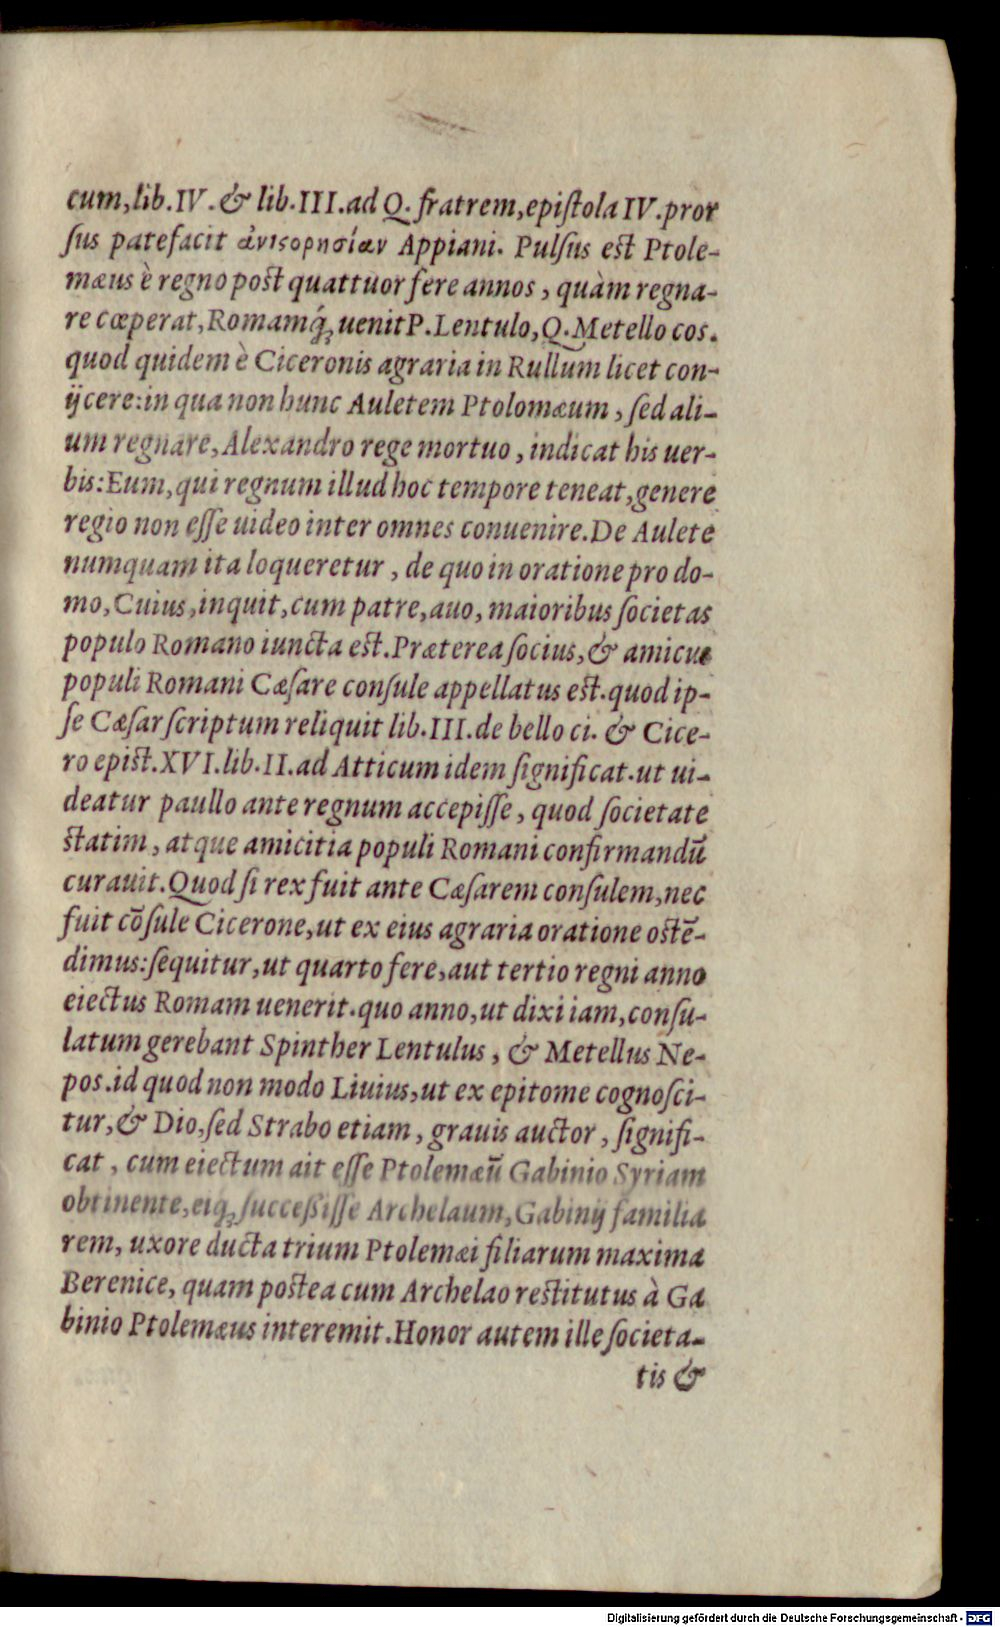 cum, lib. IV. & lib. III. ad Q. fratrem, epiſtola IV. pror
ſus patefacit ἀνιϛορησίαν Appiani. Pulſus est Ptole-
mæus è regno post quattuor fere annos, quàm regna-
re cœperat, Romamq́; uenit P. Lentulo, Q. Metello cos.
quod quidem è Ciceronis agraria in Rullum licet con-
ijcere: in qua non hunc Auletem Ptolomæum, ſed ali-
um regnare, Alexandro rege mortuo, indicat his uer-
bis: Eum, qui regnum illud hoc tempore teneat, genere
regio non eſſe uideo inter omnes conuenire. De Aulete
numquam ita loqueretur, de quo in oratione pro do-
mo, Cuius, inquit, cum patre, auo, maioribus ſocietas
populo Romano iuncta est. Præterea ſocius, & amicus
populi Romani Cæſare conſule appellatus est. quod ip-
ſe Cæſar ſcriptum reliquit lib. III. de bello ci. & Cice-
ro epist. XVI. lib. II. ad Atticum idem ſignificat. ut ui-
deatur paullo ante regnum accepiſſe, quod ſocietate
statim, atque amicitia populi Romani confirmandū
curauit. Quod ſi rex fuit ante Cæſarem conſulem, nec
fuit cōſule Cicerone, ut ex eius agraria oratione ostē-
dimus: ſequitur, ut quarto fere, aut tertio regni anno
eiectus Romam uenerit. quo anno, ut dixi iam, conſu-
latum gerebant Spinther Lentulus, & Metellus Ne-
pos. id quod non modo Liuius, ut ex epitome cognoſci-
tur, & Dio, ſed Strabo etiam, grauis auctor, ſignifi-
cat, cum eiectum ait eſſe Ptolemæū Gabinio Syriam
obtinente, eiq; ſucceßiſſe Archelaum, Gabinij familia
rem, uxore ducta trium Ptolemæi filiarum maxima
Berenice, quam postea cum Archelao restitutus à Ga
binio Ptolemæus interemit. Honor autem ille ſocieta-
tis &
Digitalisierung gefördert durch die Deutsche Forschungsgemeinschaft - DFG